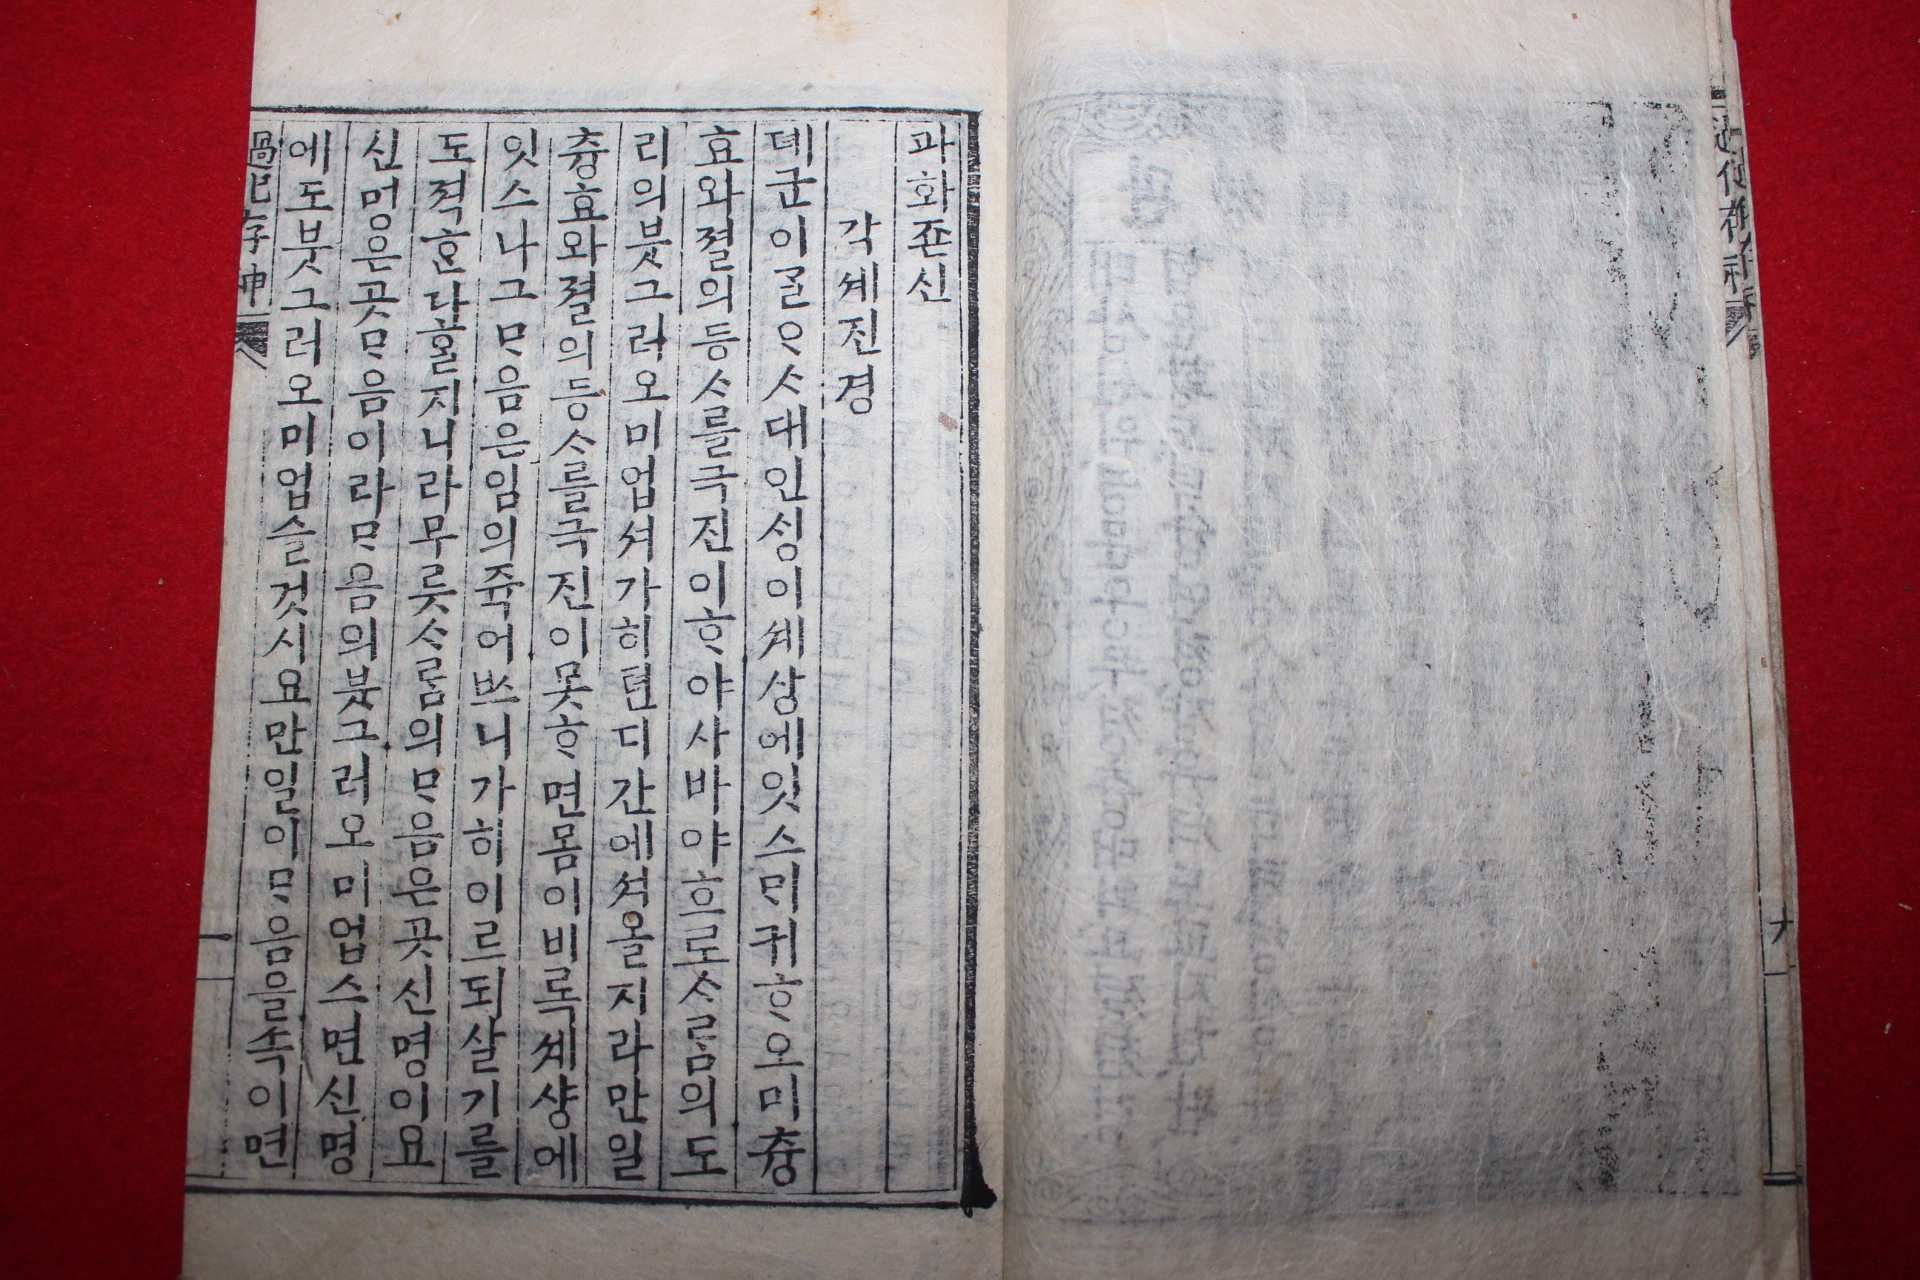 과화죤신
각셰진경
뎨군이ᄀᆞᆯᄋᆞᄉᆞ대인싱이셰상에잇스ᄆᆡ귀ᄒᆞ오미츙
효와졀의등ᄉᆞ를극진이ᄒᆞ야사바야흐로ᄉᆞᄅᆞᆷ의도
리의븟그러오미업셔가히텬디간에셔올지라만일
츙효와졀의등ᄉᆞ를극진이못ᄒᆞ면몸이비록셰샹에
잇스나그ᄆᆞ음은임의쥭어ᄡᅳ니가히이르되살기를
도젹ᄒᆞᆫ다ᄒᆞᆯ지니라무릇ᄉᆞᄅᆞᆷ의ᄆᆞ음은곳신명이요
신멍은곳ᄆᆞ음이라ᄆᆞ음의붓그러오미업스면신명
에도붓그러오미업슬것시요만일이ᄆᆞ음을속이면
過化存神
一